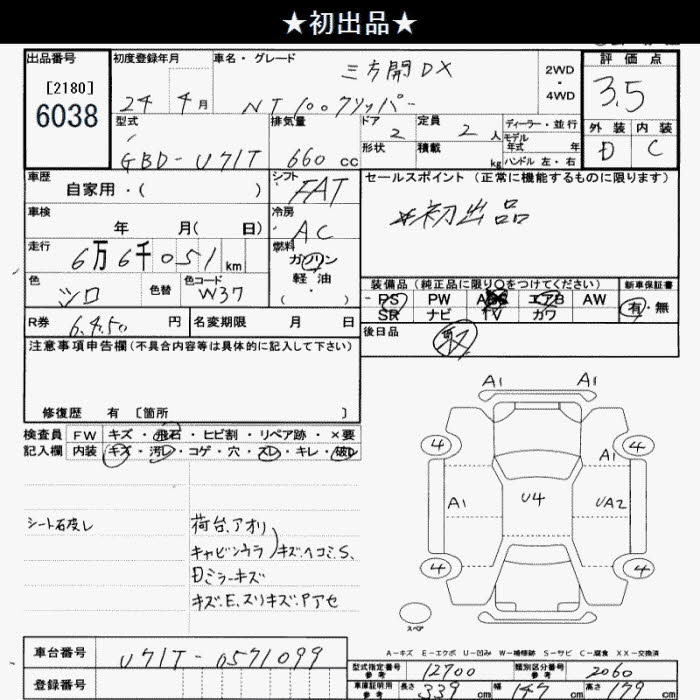 ★初出品★
出品番号
[2180]
6038
初度登録年月
24年4月
車名・グレード
三方開DX
NT100クリッパー
2WD
・
4WD
評価点
3.5
外装 内装
D C
型式
GBD-U71T
排気量
660cc
ドア 2
定員 2人
形状
積載 kg
ディーラー・並行
モデル年式 年
ハンドル 左・右
車歴
自家用・( )
シフト
FAT
セールスポイント(正常に機能するものに限ります)
*初出品
車検
年 月( 日)
冷房
AC
走行
6万6千051km
燃料
ガソリン
軽油
( ・ )
色
シロ
色替
色コード
W37
装備品(純正品に限り○をつけてください)
PS PW エアB AW
SR ナビ TV カワ
新車保証書
有・無
R券
6,450円
名変期限 月 日
後日品
取
注意事項申告欄(不具合内容等は具体的に記入して下さい)
修復歴 有 〔箇所 〕
検査員 FW キズ・飛石・ヒビ割・リペア跡・×要
記入欄 内装 キズ・汚レ・コゲ・穴・スレ・キレ・破レ
荷台、アオリ
キャビンウラ)キズ、ヘコミ、S、
Dミラーキズ
キズ、E、スリキズ、Pアセ
A1 A1
4 4
A1
A1 U4 UA2
4 4
スペア
A-キズ E-エクボ U-凹み W-補修跡 S-サビ C-腐食 XX-交換済
車台番号
U71T-0571099
登録番号
型式指定番号 参考
12700
類別区分番号 参考
2060
車庫証明用 参考
長さ 339cm 幅 147cm 高さ 179cm